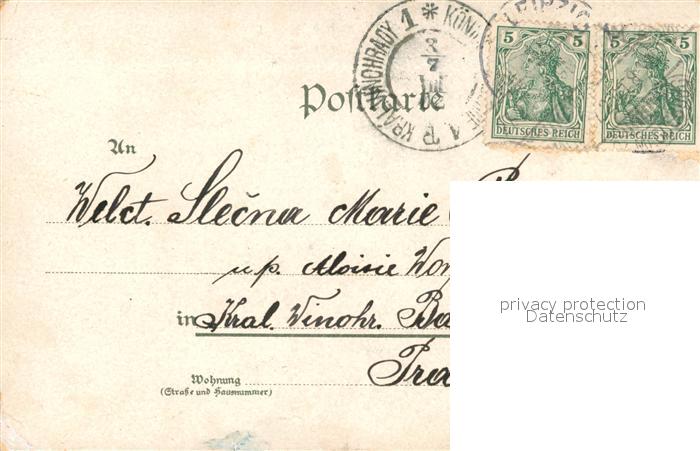 KRÁL. VINOHRADY 1 * KÖNI
3
7
LEIPZIG
5 5
DEUTSCHES REICH
5 5
DEUTSCHES REICH
Postkarte
An
Welct. Slečna Marie
u p. Aloisie
in Kral. Winohr.
Wohnung
(Straße und Hausnummer)
privacy protection
Datenschutz